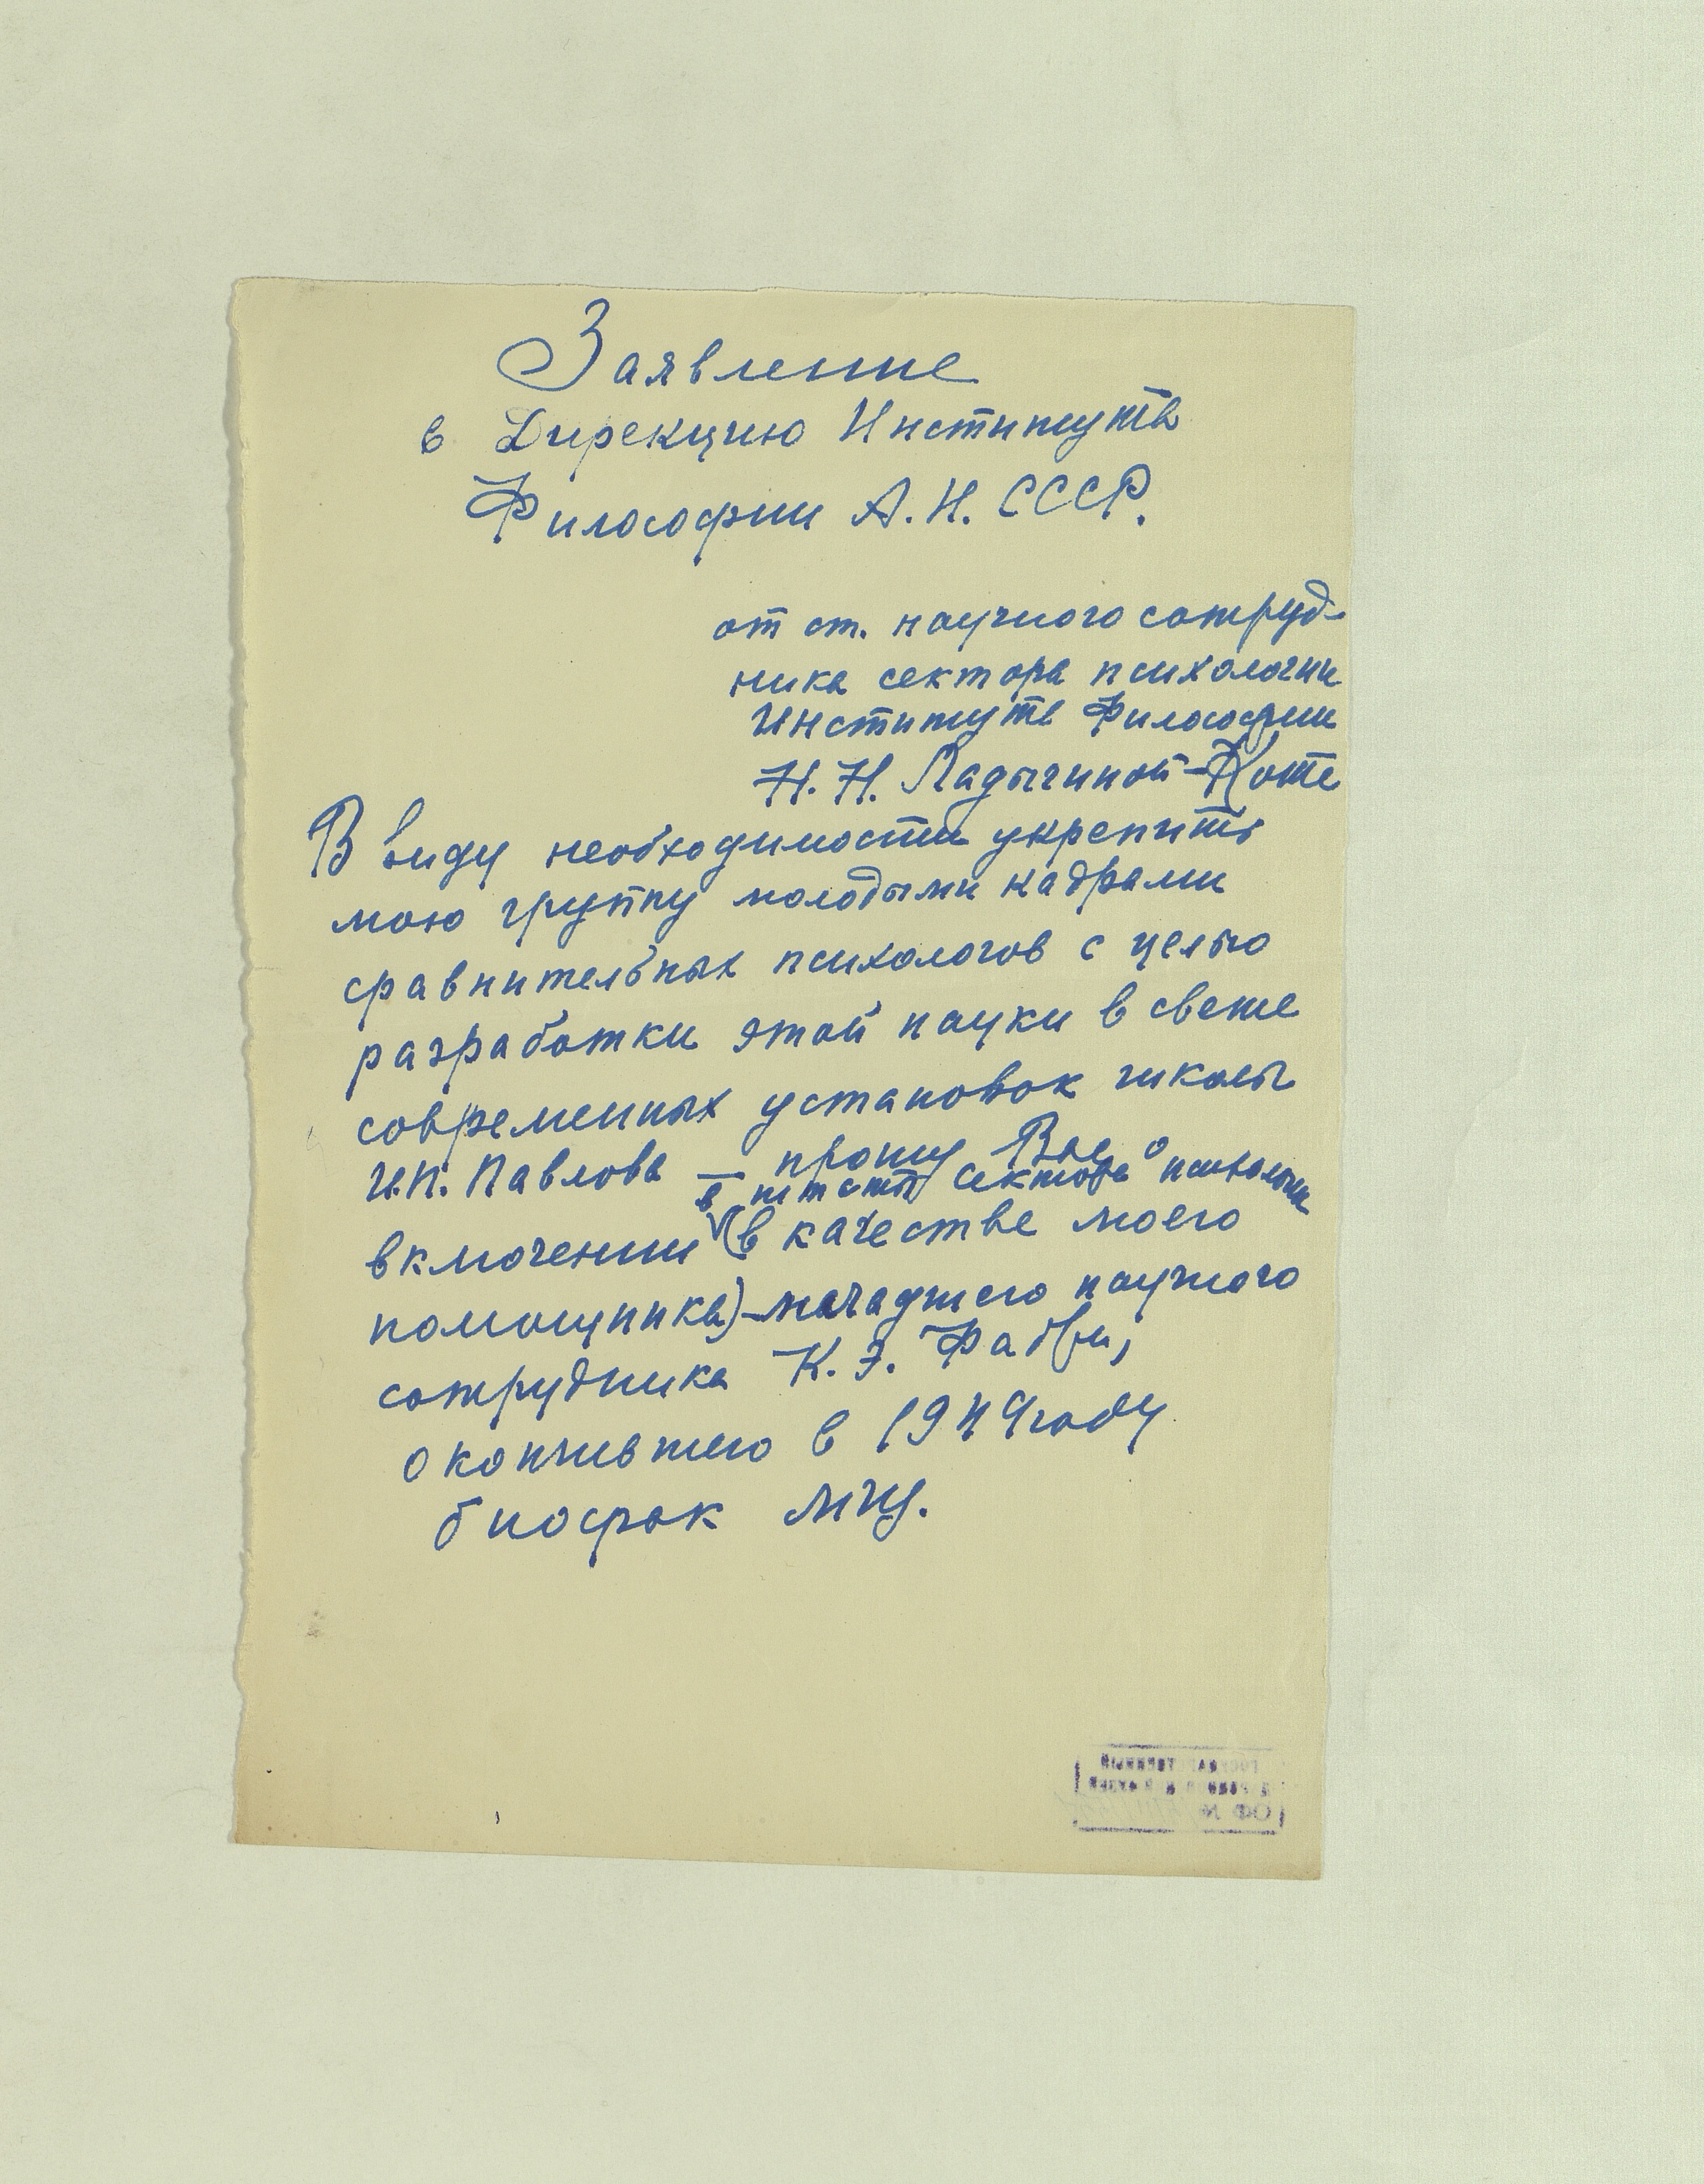 Заявление
в Дирекцию Института
Философии А. Н. СССР.
от ст. научного сотруд-
ника сектора психологии
Института Философии
Н. Н. Ладыгиной-Котс
В виду необходимости укрепить
мою группу молодыми кадрами
сравнительных психологов с целью
разработки этой науки в свете
современных установок школы
И.П. Павлова — прошу Вас о
в штат сектора психологии
включении (в качестве моего
помощника) – младшего научного
сотрудника К. Э. Фабри,
окончившего в 1949 году
биофак МГУ.
ГОСУДАРСТВЕННЫЙ
ДАРВИНОВСКИЙ МУЗЕЙ
ОФ №